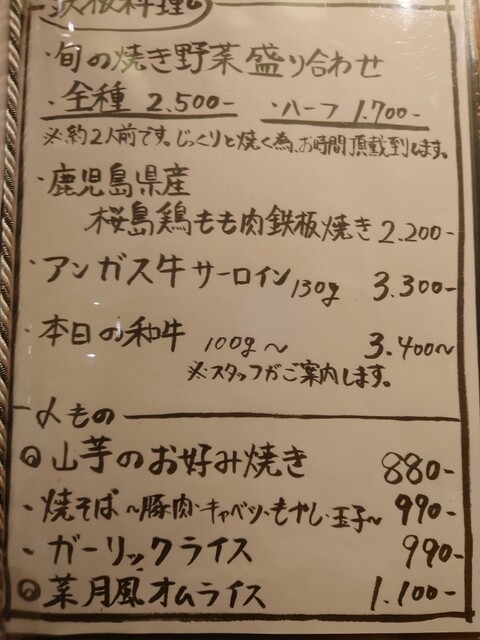 鉄板料理
・旬の焼き野菜盛り合わせ
・全種 2.500- ・ハーフ 1.700-
※約2人前です。じっくりと焼く為、お時間頂戴致します。
・鹿児島県産
桜島鶏もも肉鉄板焼き 2.200-
・アンガス牛サーロイン 130g 3.300-
・本日の和牛 100g〜 3.400〜
※スタッフがご案内します。
〆もの
山芋のお好み焼き 880-
・焼そば〜豚肉・キャベツ・もやし・玉子〜 990-
・ガーリックライス 990-
菜月風オムライス 1.100-